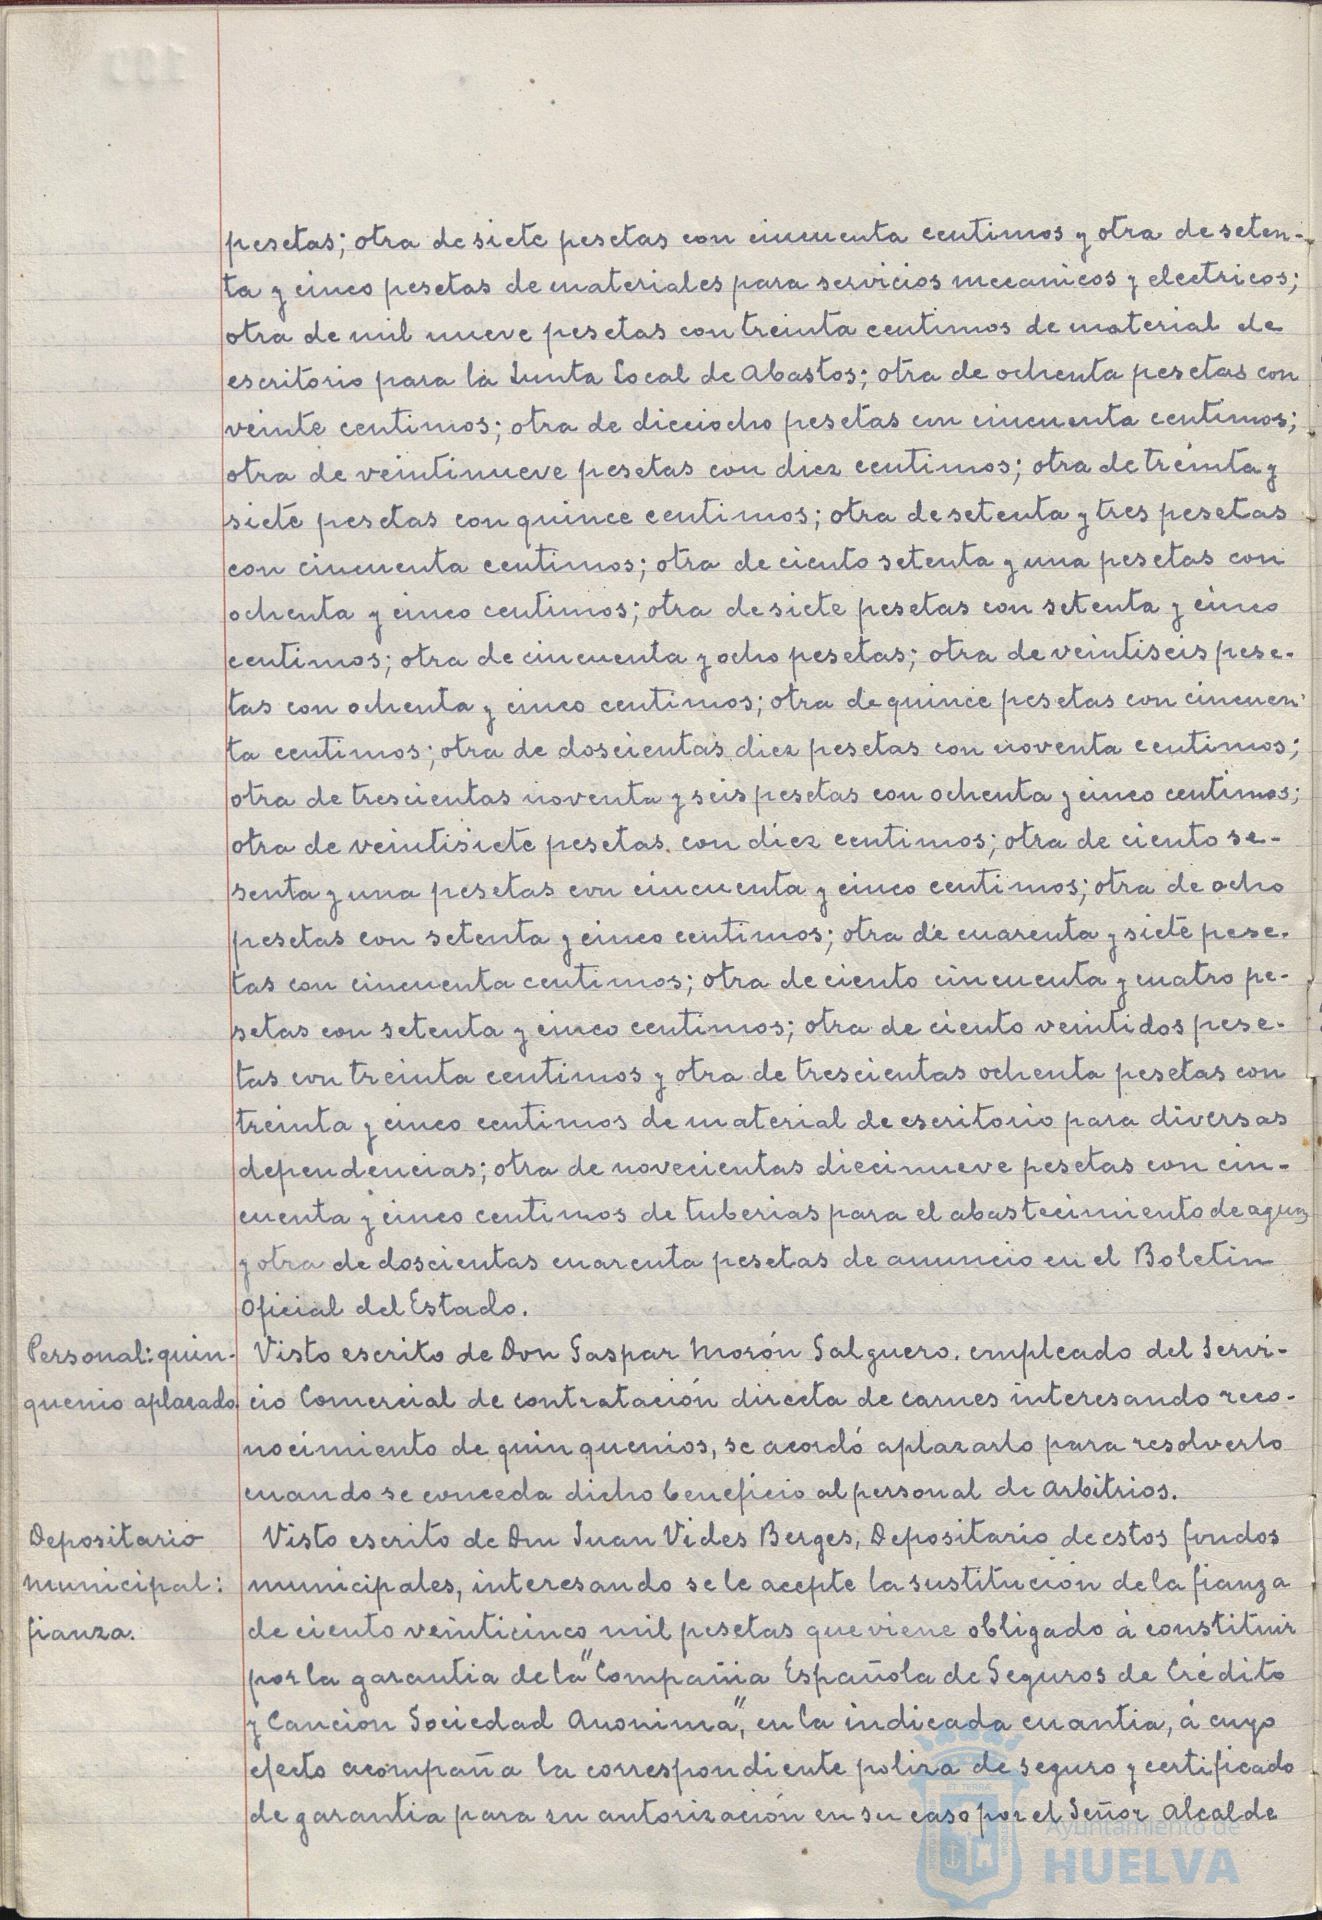 pesetas; otra de siete pesetas con cincuenta centimos y otra de seten-
ta y cinco pesetas de materiales para servicios mecanicos y electricos;
otra de mil nueve pesetas con treinta centimos de material de
escritorio para la Junta Local de Abastos; otra de ochenta pesetas con
veinte centimos; otra de dieciocho pesetas con cincuenta centimos;
otra de veintinueve pesetas con diez centimos; otra de treinta y
siete pesetas con quince centimos; otra de setenta y tres pesetas
con cincuenta centimos; otra de ciento setenta y una pesetas con
ochenta y cinco centimos; otra de siete pesetas con setenta y cinco
centimos; otra de cincuenta y ocho pesetas; otra de veintiseis pese-
tas con ochenta y cinco centimos; otra de quince pesetas con cincuen-
ta centimos; otra de doscientas diez pesetas con noventa centimos;
otra de trescientas noventa y seis pesetas con ochenta y cinco centimos;
otra de veintisiete pesetas con diez centimos; otra de ciento se-
senta y una pesetas con cincuenta y cinco centimos; otra de ocho
pesetas con setenta y cinco centimos; otra de cuarenta y siete pese-
tas con cincuenta centimos; otra de ciento cincuenta y cuatro pe-
setas con setenta y cinco centimos; otra de ciento veintidos pese-
tas con treinta centimos y otra de trescientas ochenta pesetas con
treinta y cinco centimos de material de escritorio para diversas
dependencias; otra de novecientas diecinueve pesetas con cin-
cuenta y cinco centimos de tuberias para el abastecimiento de aguas
y otra de doscientas cuarenta pesetas de anuncio en el Boletin
Oficial del Estado.
Personal: quin-
quenio aplazado.
Visto escrito de Don Gaspar Morón Salguero. empleado del Servi-
cio Comercial de contratación directa de carnes interesando reco-
nocimiento de quinquenios, se acordó aplazarlo para resolverlo
cuando se conceda dicho beneficio al personal de Arbitrios.
Depositario
municipal:
fianza.
Visto escrito de Don Juan Vides Berges, Depositario de estos fondos
municipales, interesando se le acepte la sustitución de la fianza
de ciento veinticinco mil pesetas que viene obligado á constituir
por la garantia de la "Compañia Española de Seguros de Crédito
y Caucion Sociedad Anonima", en la indicada cuantia, á cuyo
efecto acompaña la correspondiente poliza de seguro y certificado
de garantia para su autorización en su caso por el Señor Alcalde
ET TERRÆ
Ayuntamiento de
HUELVA